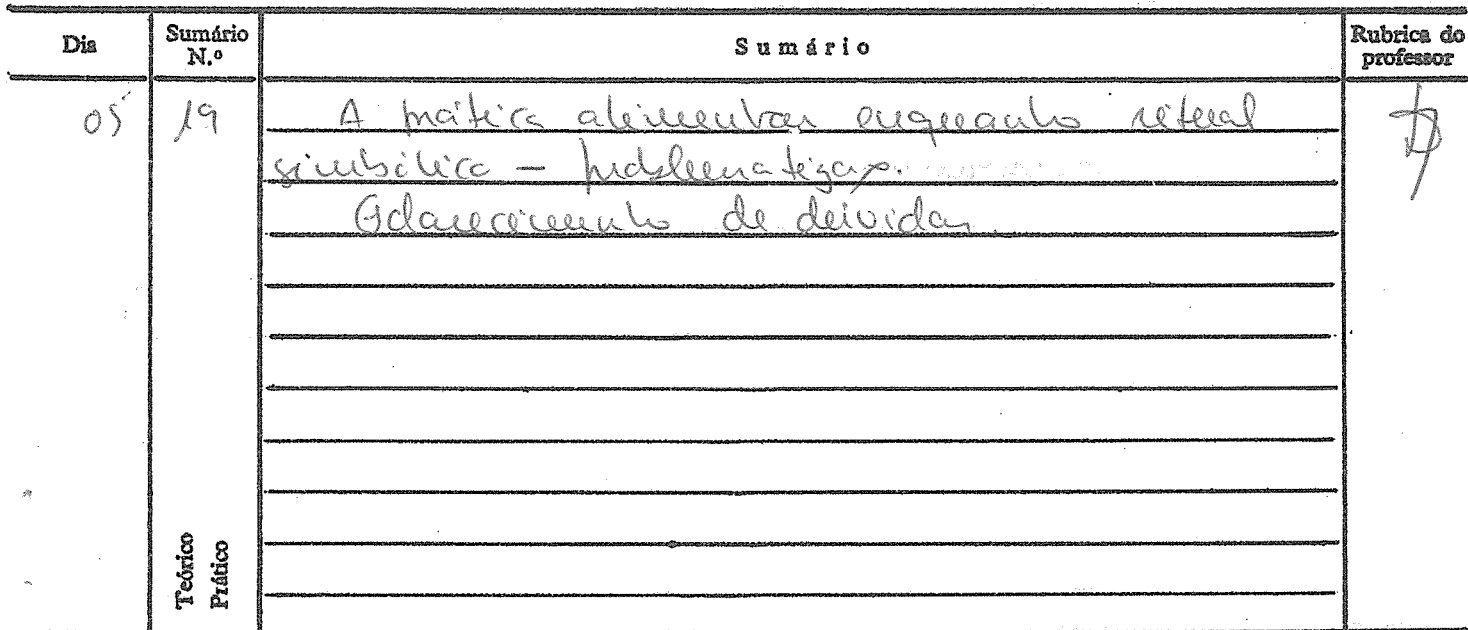 Dia
Sumário N.º
Sumário
Rubrica do professor
05 19 A prática alimentar enquanto ritual
simbólico — problematização.
Esclarecimento de dúvidas.
Teórico
Prático